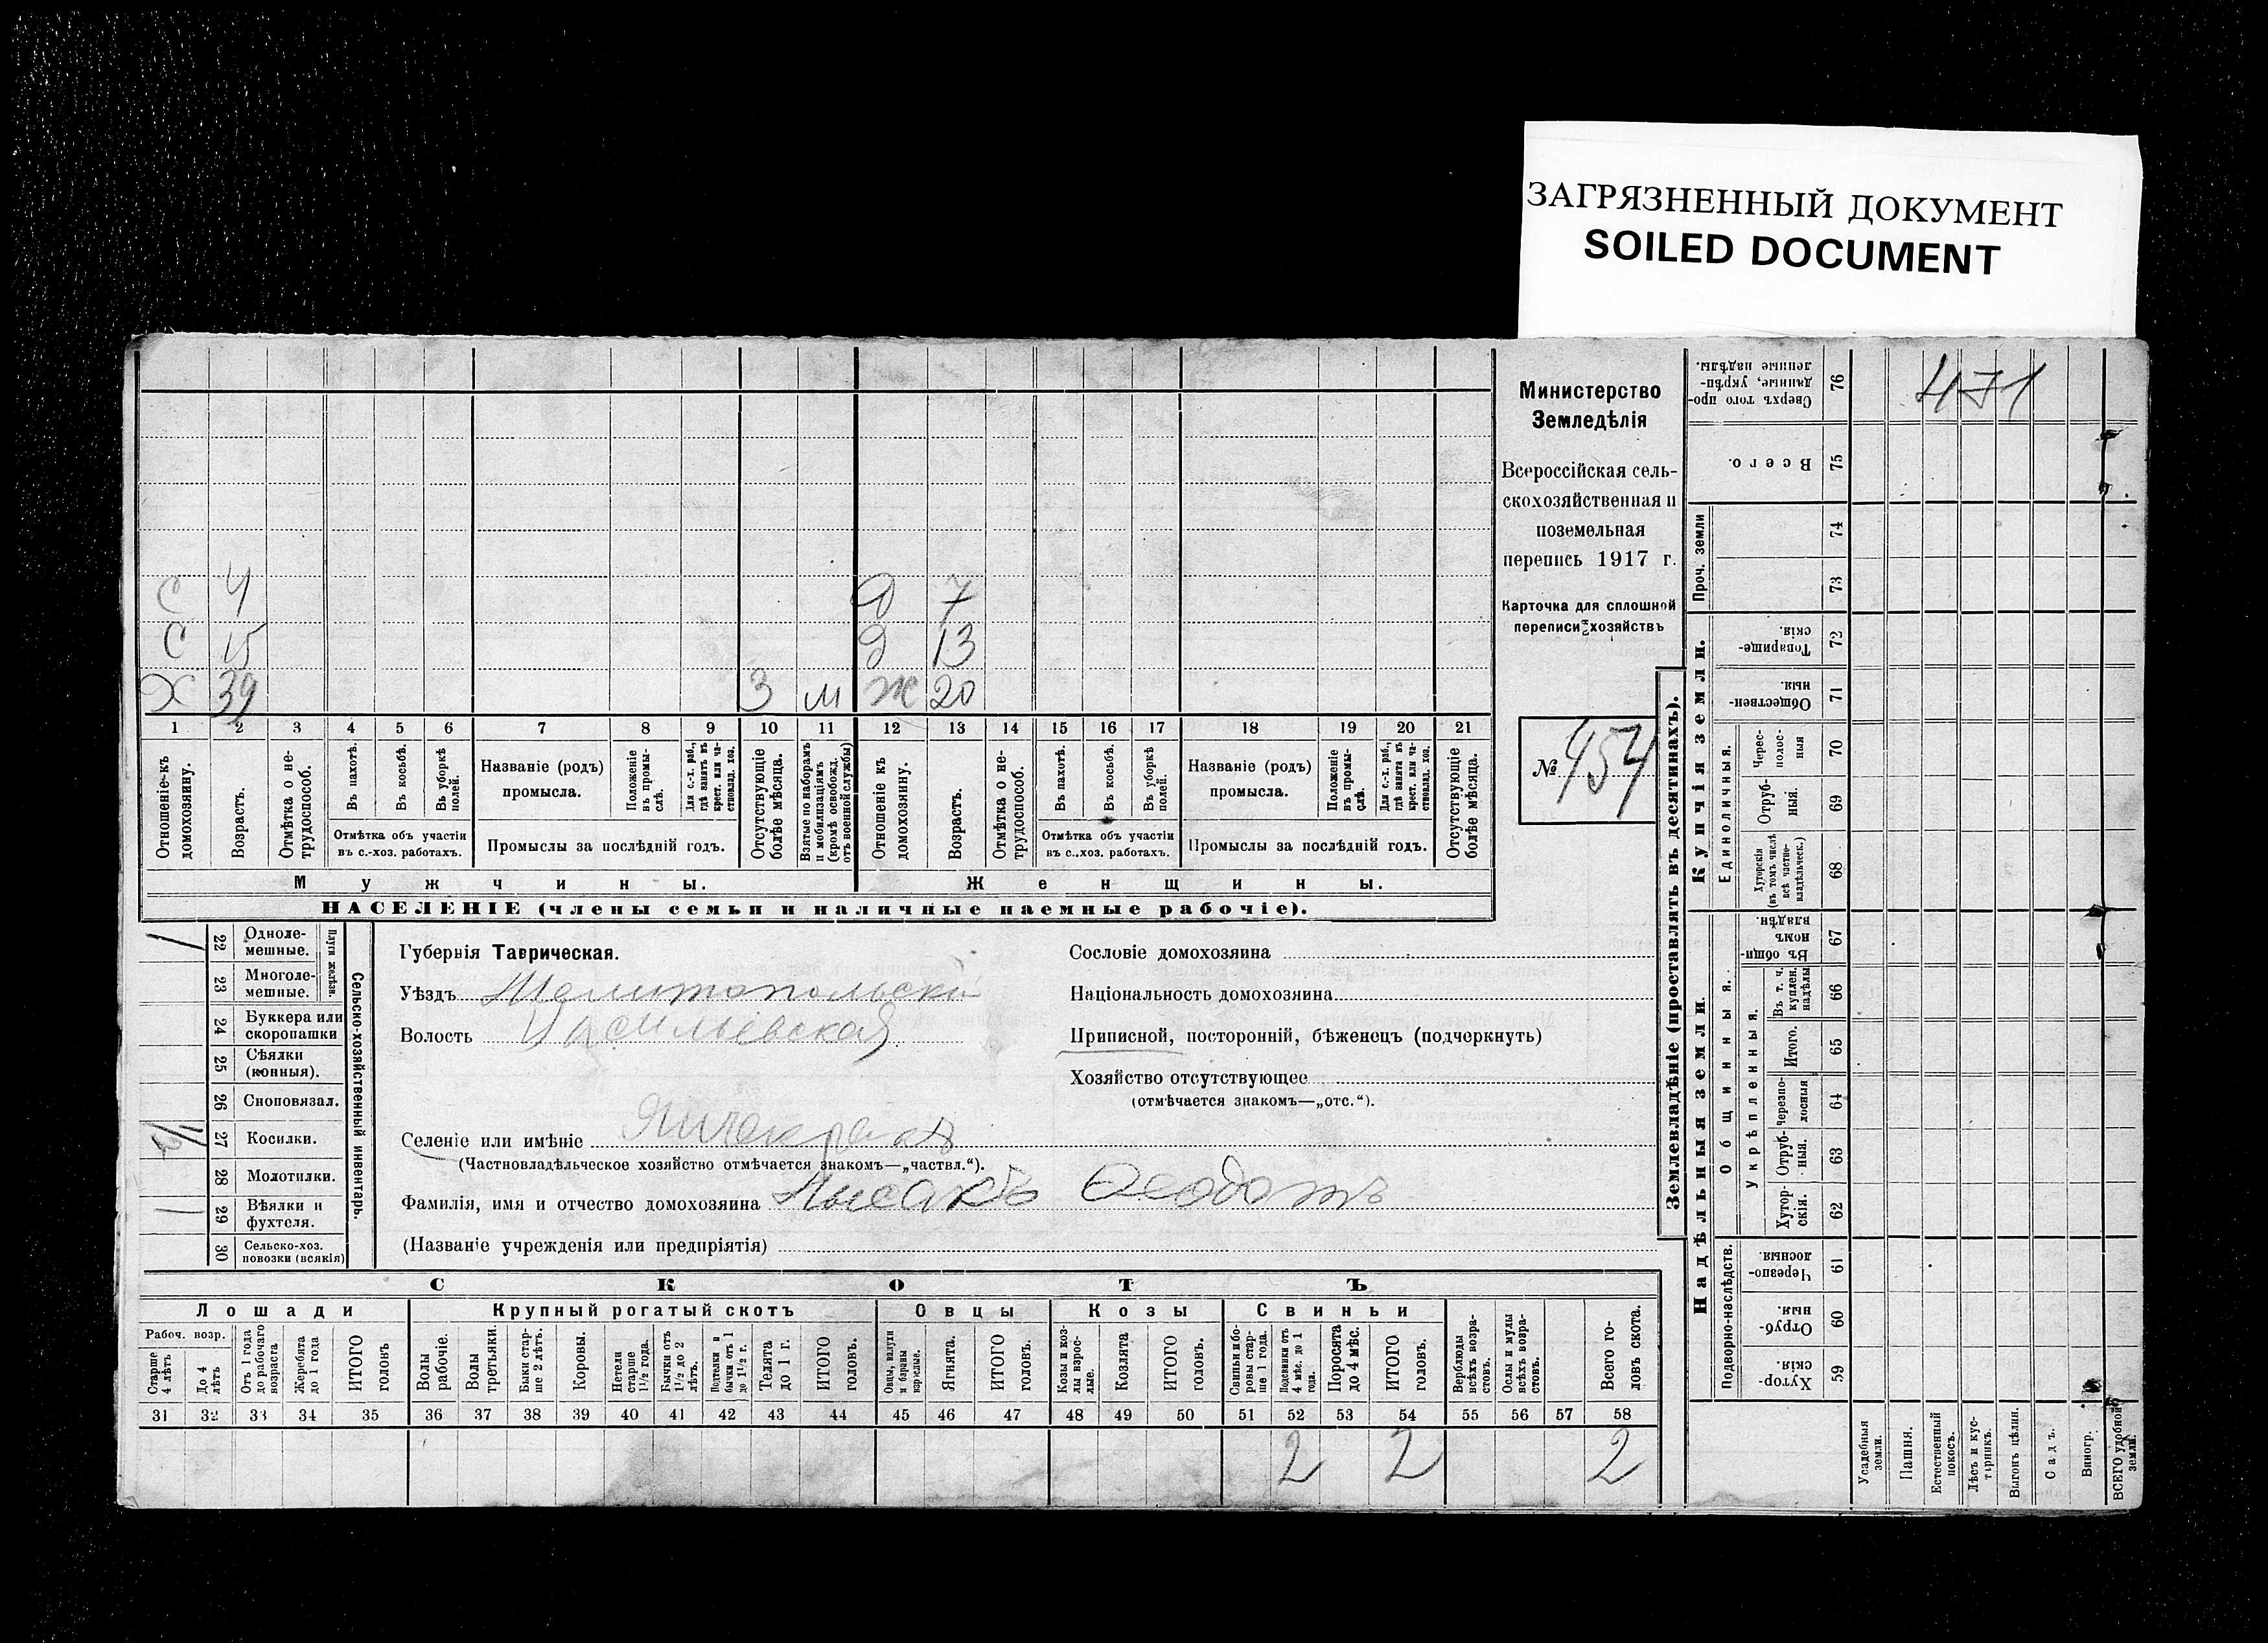 ЗАГРЯЗНЕННЫЙ ДОКУМЕНТ
SOILED DOCUMENT
Министерство
Земледѣлія
Всероссійская сель-
скохозяйственная и
поземельная
перепись 1917 г.
Карточка для сплошной
переписи хозяйствъ
№ 454
471
С 4 Д 7
С 15 Д 13
Х 39 3 м Ж 20
1 2 3 4 5 6 7 8 9 10 11 12 13 14 15 16 17 18 19 20 21
Отношеніе къ домохозяину.
Возрастъ.
Отмѣтка о не-трудоспособ.
Въ пахотѣ.
Въ косьбѣ.
Въ уборкѣ полей.
Названіе (родъ) промысла.
Положеніе въ промы-слѣ.
Для с.-х. раб., гдѣ занятъ въ крест. или ча-стновлад. хоз.
Отсутствующіе болѣе мѣсяца.
Взятые по наборамъ и мобилизаціямъ (кромѣ освобожд. отъ военной службы)
Отношеніе къ домохозяину.
Возрастъ.
Отмѣтка о не-трудоспособ.
Въ пахотѣ.
Въ косьбѣ.
Въ уборкѣ полей.
Названіе (родъ) промысла.
Положеніе въ промы-слѣ.
Для с.-х. раб., гдѣ занята въ крест. или ча-стновлад. хоз.
Отсутствующіе болѣе мѣсяца.
Отмѣтка объ участіи въ с.-хоз. работахъ.
Промыслы за послѣдній годъ.
Отмѣтка объ участіи въ с..хоз. работахъ.
Промыслы за послѣдній годъ.
Мужчины. Женщины.
НАСЕЛЕНІЕ (члены семьи и наличные наемные рабочіе).
22 Одноле-мешные.
23 Многоле-мешные.
Плуги желѣзн.
24 Буккера или скоропашки
25 Сѣялки (конныя).
26 Сноповязал.
27 Косилки.
28 Молотилки.
29 Вѣялки и фухтеля.
30 Сельско-хоз. повозки (всякія)
Сельско-хозяйственный инвентарь.
Губернія Таврическая.
Уѣздъ Мелитопольскій
Волость Васильевская
Селеніе или имѣніе Янчекракъ
(Частновладѣльческое хозяйство отмѣчается знакомъ—„частвл.“).
Фамилія, имя и отчество домохозяина Лысакъ Ѳеодотъ
(Названіе учрежденія или предпріятія)
Сословіе домохозяина
Національность домохозяина
Приписной, посторонній, бѣженецъ (подчеркнуть)
Хозяйство отсутствующее
(отмѣчается знакомъ—„отс.“).
СКОТЪ
Лошади Крупный рогатый скотъ Овцы Козы Свиньи
Рабоч. возр.
Старше 4 лѣтъ
До 4 лѣтъ
Отъ 1 года до рабочаго возраста
Жеребята до 1 года
ИТОГО головъ
Волы рабочіе.
Волы третьяки.
Быки стар-ше 2 лѣтъ.
Коровы.
Нетели старше 1½ года.
Бычки отъ 1½ до 2 лѣтъ.
Подтелки и бычки отъ 1 до 1½ г.
Телята до 1 г.
ИТОГО головъ.
Овцы, валухи и бараны взрослые.
Ягнята.
ИТОГО головъ.
Козы и коз-лы взрос-лые.
Козлята
ИТОГО головъ.
Свиньи и бо-ровы стар-ше 1 года.
Подсвинки отъ 4 мѣс. до 1 года.
Поросята до 4 мѣс.
ИТОГО головъ.
Верблюды всѣхъ возра-стовъ.
Ослы и мулы всѣхъ возра-стовъ.
Всего го-ловъ скота.
31 32 33 34 35 36 37 38 39 40 41 42 43 44 45 46 47 48 49 50 51 52 53 54 55 56 57 58
2 2 2
Землевладѣніе (проставлять въ десятинахъ).
Надѣльныя земли. Купчія земли.
Подворно-наслѣдств.
Общинныя.
Укрѣпленныя.
Единоличныя.
Проч. земли
Сверхъ того про-данные, укрѣп-ленные надѣлы. 76
Всего. 75
74
73
Товарище-скія. 72
Обществен-ныя. 71
Черес-полос-ныя 70
Отруб-ныя. 69
Хуторскія (въ томъ числѣ всѣ частно-владѣльческ.) 68
Въ общин-номъ владѣн. 67
Въ т. ч. куплен. надѣлы 66
Итого. 65
Черезпо-лосныя 64
Отруб-ныя. 63
Хутор-скія. 62
Черезпо-лосныя. 61
Отруб-ныя. 60
Хутор-скія. 59
Усадебныя земли.
Пашня.
Естественный покосъ.
Лѣсъ и кус-тарникъ.
Выгонъ цѣлин.
Садъ.
Виногр.
ВСЕГО удобной земли.